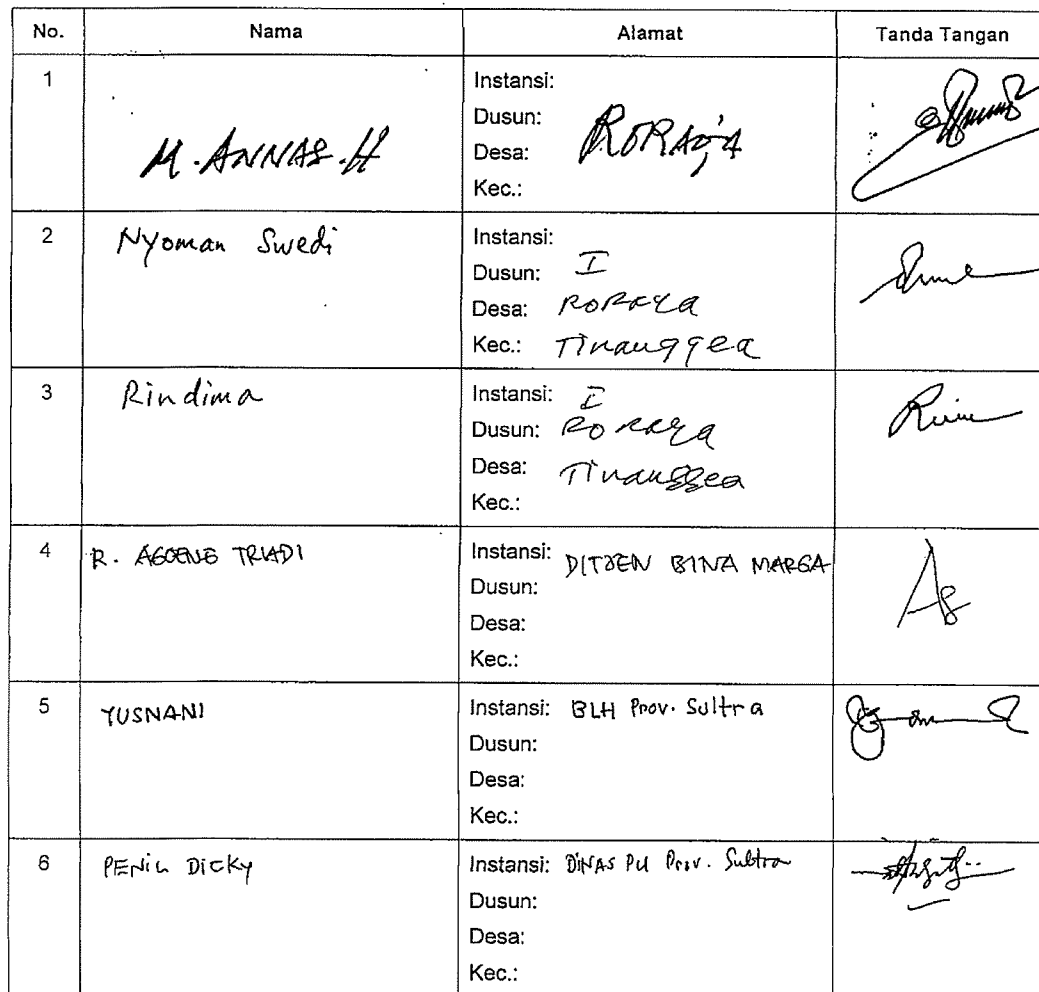 No. Nama Alamat Tanda Tangan
1 Instansi:
Dusun:
M. ANNAS. H Desa: RORAYA
Kec.:
2 Nyoman Swedi Instansi:
Dusun: I
Desa: RORAYA
Kec.: Tinanggea
3 Rindima Instansi: I
Dusun: RORAYA
Desa: Tinanggea
Kec.:
4 R. AGOENG TRIADI Instansi: DITJEN BINA MARGA
Dusun:
Desa:
Kec.:
5 YUSNANI Instansi: BLH Prov. Sultra
Dusun:
Desa:
Kec.:
6 PENIL DICKY Instansi: DINAS PU Prov. Sultra
Dusun:
Desa:
Kec.: